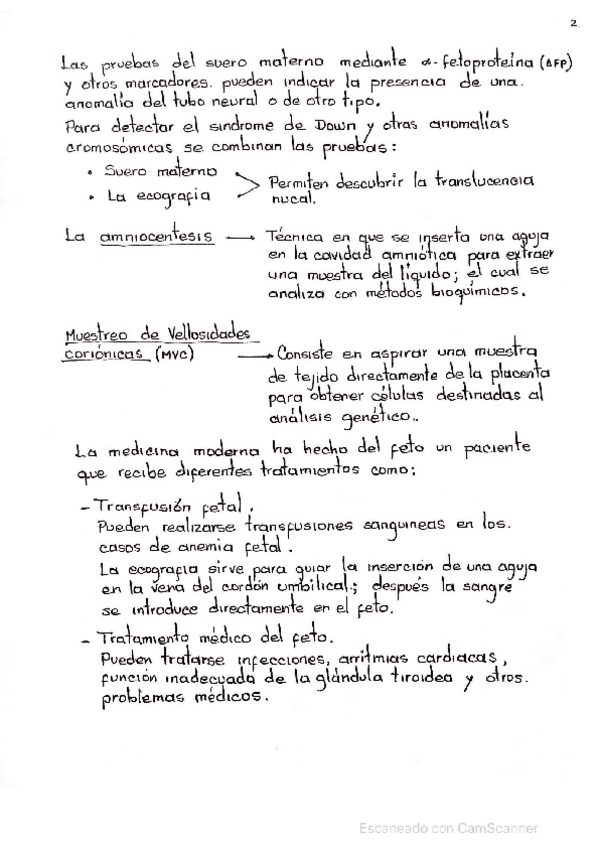 2.
Las pruebas del suero materno mediante α-fetoproteína (AFP)
y otros marcadores. pueden indicar la presencia de una.
anomalía del tubo neural o de otro tipo.
Para detectar el síndrome de Down y otras anomalías
cromosómicas se combinan las pruebas:
• Suero materno
• La ecografía
Permiten descubrir la translucencia
nucal.
La amniocentesis → Técnica en que se inserta una aguja
en la cavidad amniótica para extraer
una muestra del líquido; el cual se
analiza con métodos bioquímicos.
Muestreo de Vellosidades
coriónicas (MVC) → Consiste en aspirar una muestra
de tejido directamente de la placenta
para obtener células destinadas al
análisis genético..
La medicina moderna ha hecho del feto un paciente
que recibe diferentes tratamientos como:
- Transfusión fetal.
Pueden realizarse transfusiones sanguineas en los.
casos de anemia fetal.
La ecografía sirve para guiar la inserción de una aguja
en la vena del cordón umbilical; después la sangre
se introduce directamente en el feto.
- Tratamiento médico del feto.
Pueden tratarse infecciones, arritmias cardiacas,
función inadecuada de la glándula tiroidea y otros.
problemas médicos.
Escaneado con CamScanner